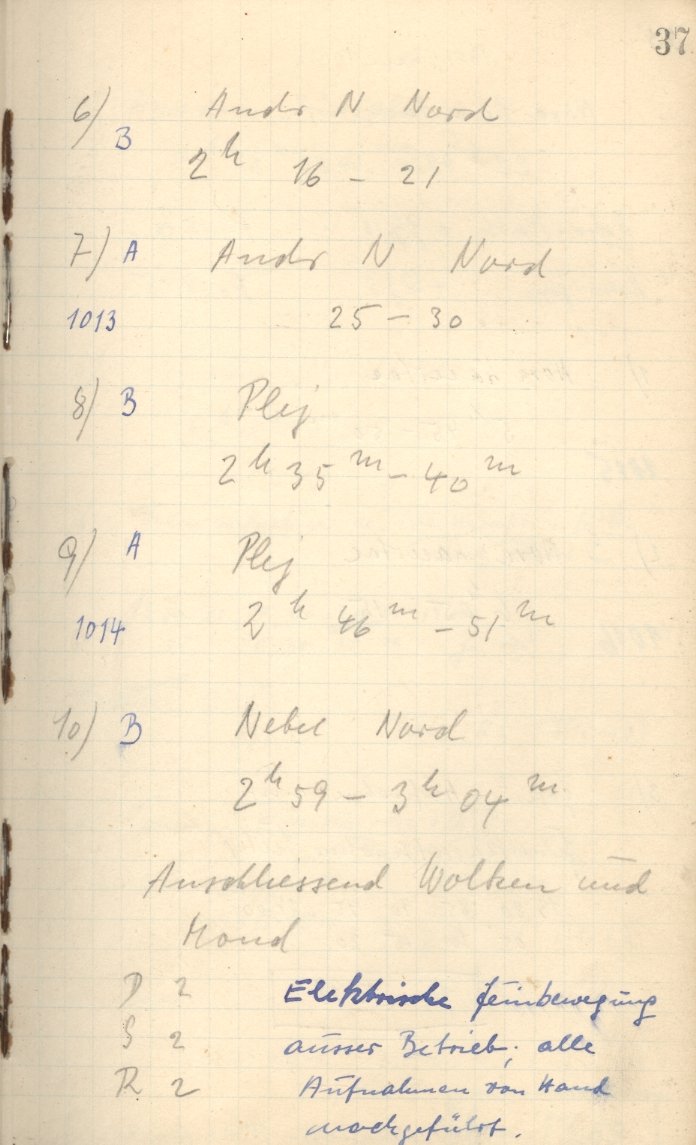 37
6) B Andr N Nord
2h 16 - 21
7) A Andr N Nord
1013 25 - 30
8) B Plej
2h 35m - 40m
9) A Plej
1014 2h 46m - 51m
10) B Nebel Nord
2h 59 - 3h 04m
Anschliessend Wolken und
Mond
D 2 Elektrische Feinbewegung
S 2 ausser Betrieb; alle
R 2 Aufnahmen von Hand
nachgeführt.